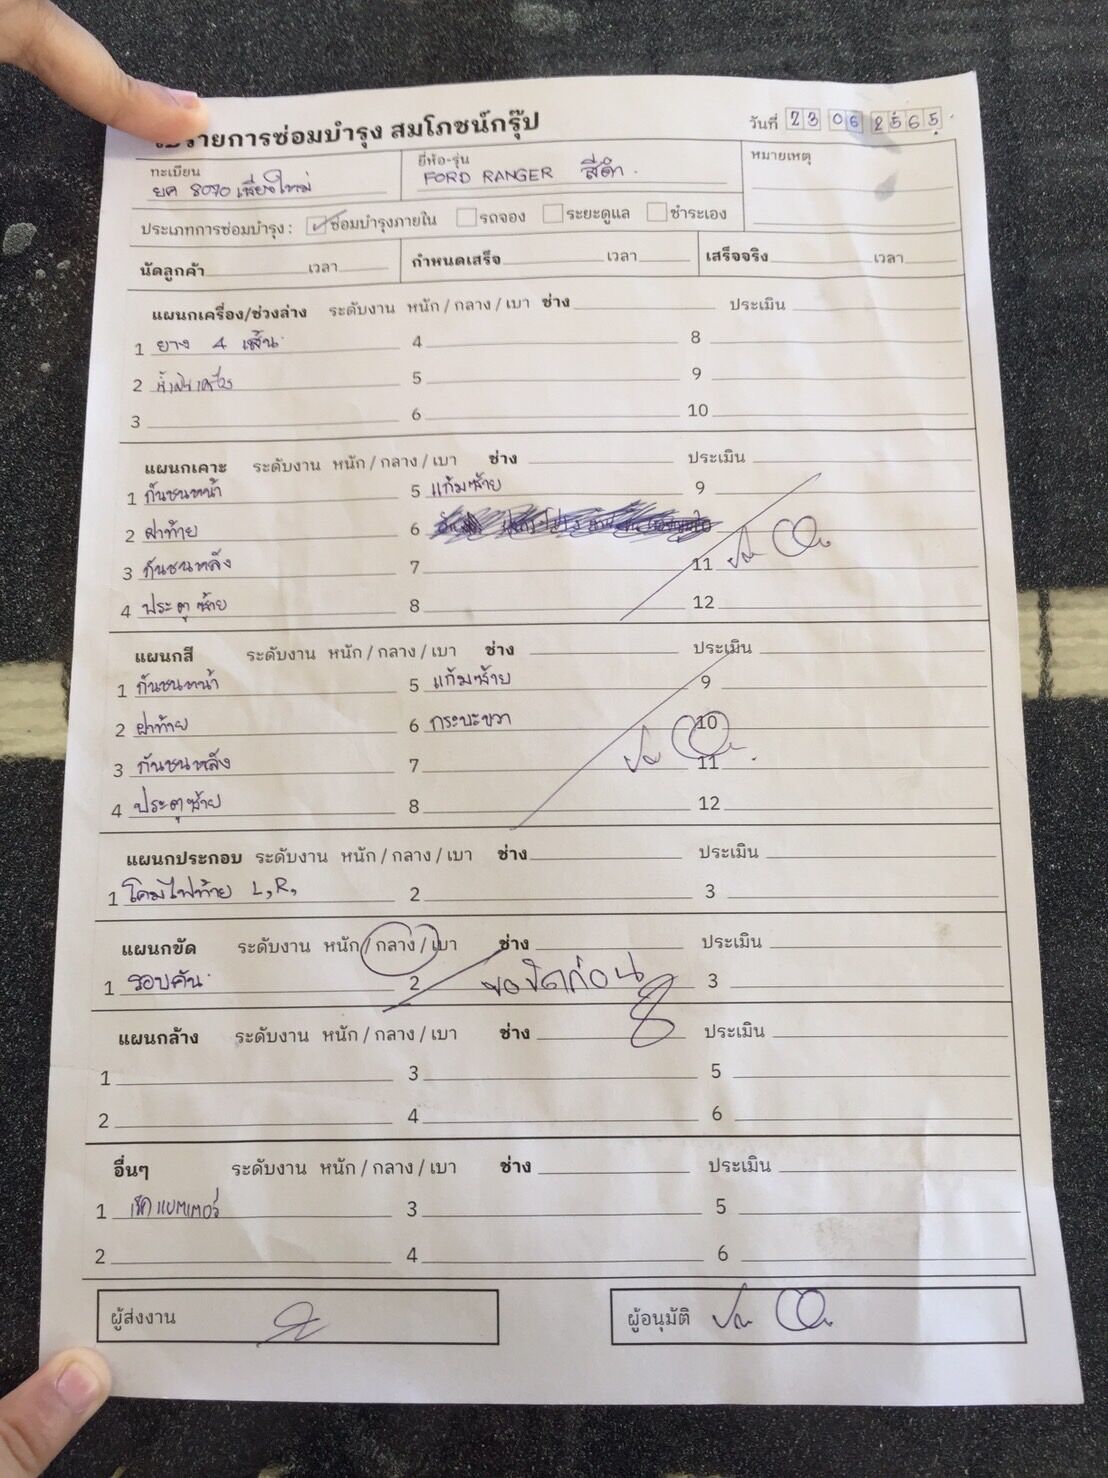 รายการซ่อมบำรุง สมโภชน์กรุ๊ป วันที่ 23 06 2565
ทะเบียน ยี่ห้อ-รุ่น หมายเหตุ
ยค 8070 เชียงใหม่ FORD RANGER สีดำ
ประเภทการซ่อมบำรุง : ซ่อมบำรุงภายใน รถจอง ระยะดูแล ชำระเอง
นัดลูกค้า เวลา กำหนดเสร็จ เวลา เสร็จจริง เวลา
แผนกเครื่อง/ช่วงล่าง ระดับงาน หนัก / กลาง / เบา ช่าง ประเมิน
1 ยาง 4 เส้น 4 8
2 น้ำมันเครื่อง 5 9
3 6 10
แผนกเคาะ ระดับงาน หนัก / กลาง / เบา ช่าง ประเมิน
1 กันชนหน้า 5 แก้มซ้าย 9
2 ฝาท้าย 6
3 กันชนหลัง 7 11
4 ประตูซ้าย 8 12
แผนกสี ระดับงาน หนัก / กลาง / เบา ช่าง ประเมิน
1 กันชนหน้า 5 แก้มซ้าย 9
2 ฝาท้าย 6 กระบะขวา 10
3 กันชนหลัง 7 11
4 ประตูซ้าย 8 12
แผนกประกอบ ระดับงาน หนัก / กลาง / เบา ช่าง ประเมิน
1 โคมไฟท้าย L,R, 2 3
แผนกขัด ระดับงาน หนัก / กลาง / เบา ช่าง ประเมิน
1 รอบคัน 2 ขอขัดก่อน 3
แผนกล้าง ระดับงาน หนัก / กลาง / เบา ช่าง ประเมิน
1 3 5
2 4 6
อื่นๆ ระดับงาน หนัก / กลาง / เบา ช่าง ประเมิน
1 เช็คแบตเตอรี่ 3 5
2 4 6
ผู้ส่งงาน ผู้อนุมัติ